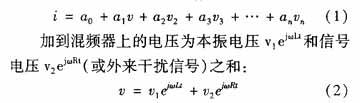 i = a₀ + a₁v + a₂v₂ + a₃v₃ + ⋯ + aₙvₙ (1)
加到混频器上的电压为本振电压 v₁e^{jωLt} 和信号
电压 v₂e^{jωRt} (或外来干扰信号)之和:
v = v₁e^{jωLt} + v₂e^{jωRt} (2)